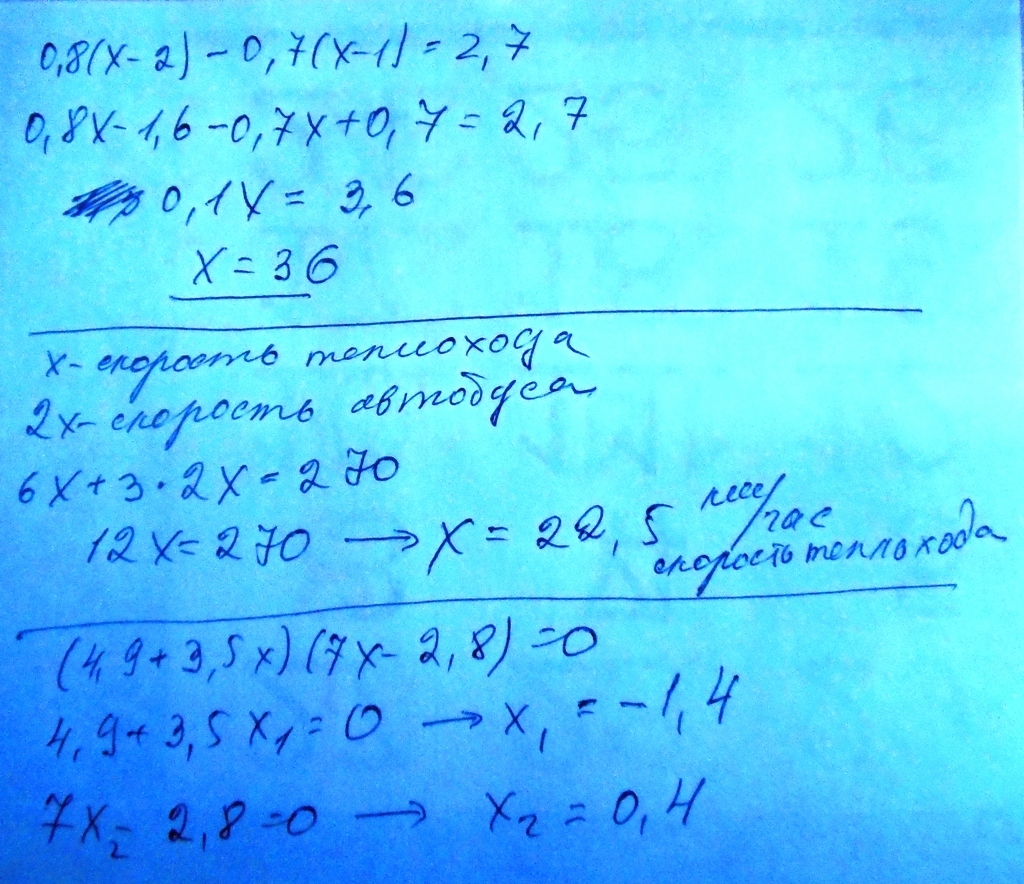 0,8(x-2) - 0,7(x-1) = 2,7
0,8x-1,6-0,7x+0,7 = 2,7
0,1x = 3,6
x = 36
x- скорость теплохода
2x- скорость автобуса
6x+3·2x=270
12x=270 → x = 22,5 км/час
скорость теплохода
(4,9+3,5x)(7x-2,8)=0
4,9+3,5x₁=0 → x₁ = -1,4
7x₂- 2,8=0 → x₂ = 0,4